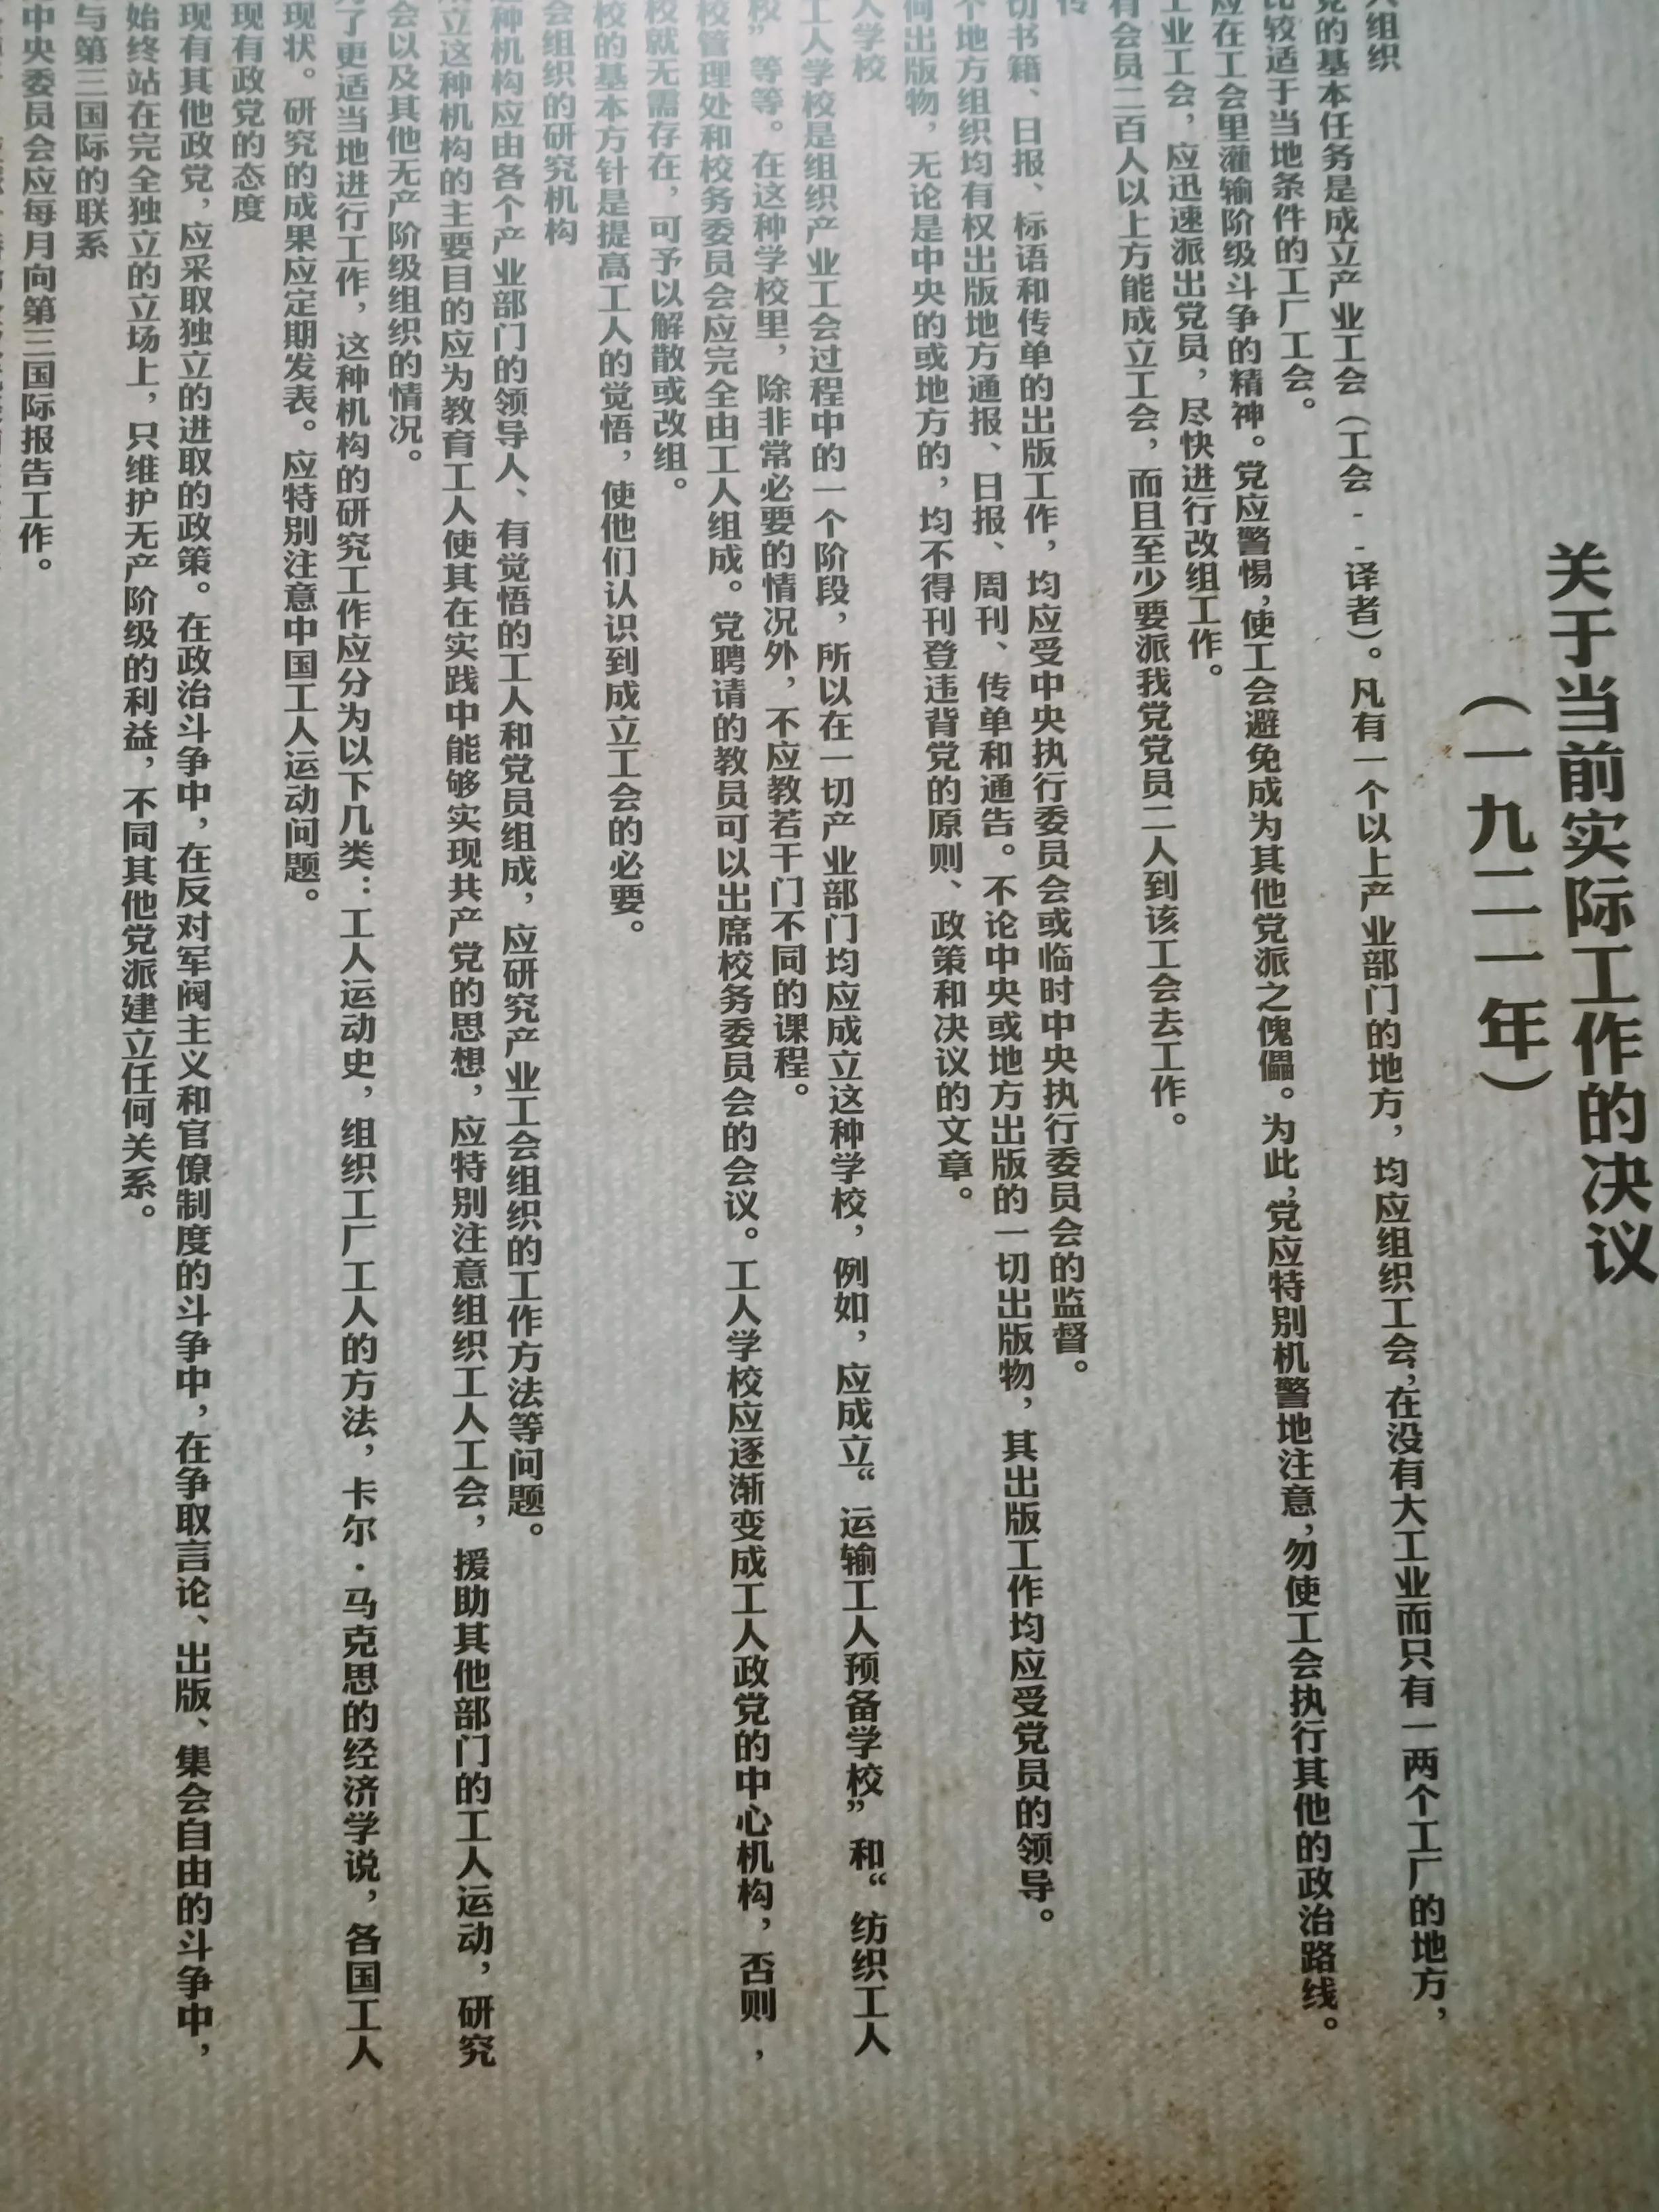 关于当前实际工作的决议
（一九二一年）
组织
党的基本任务是成立产业工会（工会--译者）。凡有一个以上产业部门的地方，均应组织工会，在没有大工业而只有一两个工厂的地方，
比较适于当地条件的工厂工会。
应在工会里灌输阶级斗争的精神。党应警惕，使工会避免成为其他党派之傀儡。为此，党应特别机警地注意，勿使工会执行其他的政治路线。
工业工会，应迅速派出党员，尽快进行改组工作。
有会员二百人以上方能成立工会，而且至少要派我党党员二人到该工会去工作。
传
切书籍、日报、标语和传单的出版工作，均应受中央执行委员会或临时中央执行委员会的监督。
个地方组织均有权出版地方通报、日报、周刊、传单和通告。不论中央或地方出版的一切出版物，其出版工作均应受党员的领导。
何出版物，无论是中央的或地方的，均不得刊登违背党的原则、政策和决议的文章。
人学校
工人学校是组织产业工会过程中的一个阶段，所以在一切产业部门均应成立这种学校，例如，应成立“运输工人预备学校”和“纺织工人
校”等等。在这种学校里，除非常必要的情况外，不应教若干门不同的课程。
校管理处和校务委员会应完全由工人组成。党聘请的教员可以出席校务委员会的会议。工人学校应逐渐变成工人政党的中心机构，否则，
校就无需存在，可予以解散或改组。
校的基本方针是提高工人的觉悟，使他们认识到成立工会的必要。
会组织的研究机构
种机构应由各个产业部门的领导人、有觉悟的工人和党员组成，应研究产业工会组织的工作方法等问题。
成立这种机构的主要目的应为教育工人使其在实践中能够实现共产党的思想，应特别注意组织工人工会，援助其他部门的工人运动，研究
会以及其他无产阶级组织的情况。
了更适当地进行工作，这种机构的研究工作应分为以下几类：工人运动史，组织工厂工人的方法，卡尔·马克思的经济学说，各国工人
现状。研究的成果应定期发表。应特别注意中国工人运动问题。
现有政党的态度
现有其他政党，应采取独立的进取的政策。在政治斗争中，在反对军阀主义和官僚制度的斗争中，在争取言论、出版、集会自由的斗争中，
始终站在完全独立的立场上，只维护无产阶级的利益，不同其他党派建立任何关系。
与第三国际的联系
中央委员会应每月向第三国际报告工作。